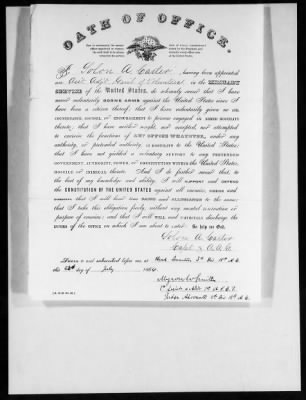 OATH OF OFFICE.
I, Solon A. Carter, having been appointed
an Asst Adjt Genl of Volunteers in the MILITARY
SERVICE of the United States, do solemnly swear that I have
never voluntarily BORNE ARMS against the United States since I
have been a citizen thereof; that I have voluntarily given no aid,
COUNTENANCE, COUNSEL, or ENCOURAGEMENT to persons engaged in ARMED HOSTILITY
thereto; that I have neither sought, nor accepted, nor attempted
to exercise the functions of ANY OFFICE WHATEVER, under any
authority, or pretended authority, in HOSTILITY to the United States;
that I have not yielded a voluntary support to any PRETENDED
GOVERNMENT, AUTHORITY, POWER, or CONSTITUTION WITHIN the United States,
HOSTILE or INIMICAL thereto. And I do further swear that, to
the best of my knowledge and ability, I will SUPPORT and DEFEND
the CONSTITUTION OF THE UNITED STATES against all enemies, FOREIGN and
DOMESTIC; that I will bear true FAITH and ALLEGIANCE to the same;
that I take this obligation freely, without any mental reservation or
purpose of evasion; and that I will WELL and FAITHFULLY discharge the
DUTIES of the OFFICE on which I am about to enter: So help me God.
Solon A. Carter
Capt & A.A.G.
Sworn to and subscribed before me, at Head Quarters 3d Div 18th A.C.
this day of July 1864.
Judge Advocate 3d Div 18th A.C.